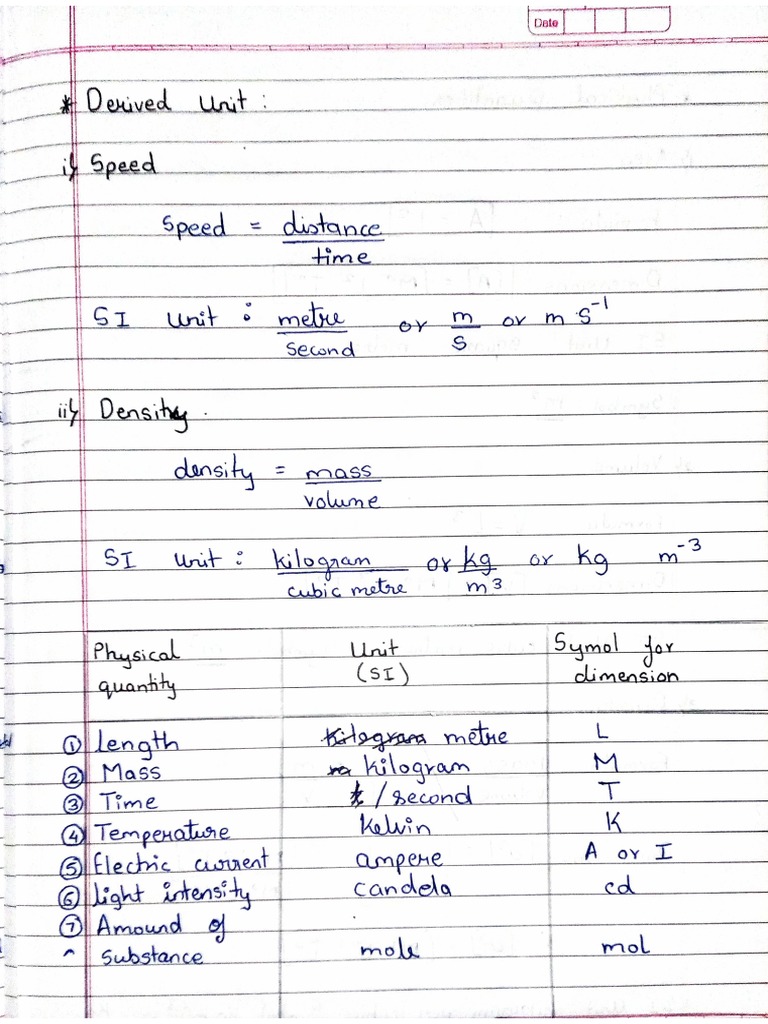 Date
* Derived Unit :
i) Speed
Speed = distance / time
SI Unit : metre / second or m / s or m s⁻¹
ii) Density.
density = mass / volume
SI Unit : kilogram / cubic metre or kg / m³ or kg m⁻³
Physical quantity | Unit (SI) | Symol for dimension
① Length | metre | L
② Mass | kilogram | M
③ Time | / second | T
④ Temperature | Kelvin | K
⑤ Electric current | ampere | A or I
⑥ light intensity | candela | cd
⑦ Amound of
substance | mole | mol